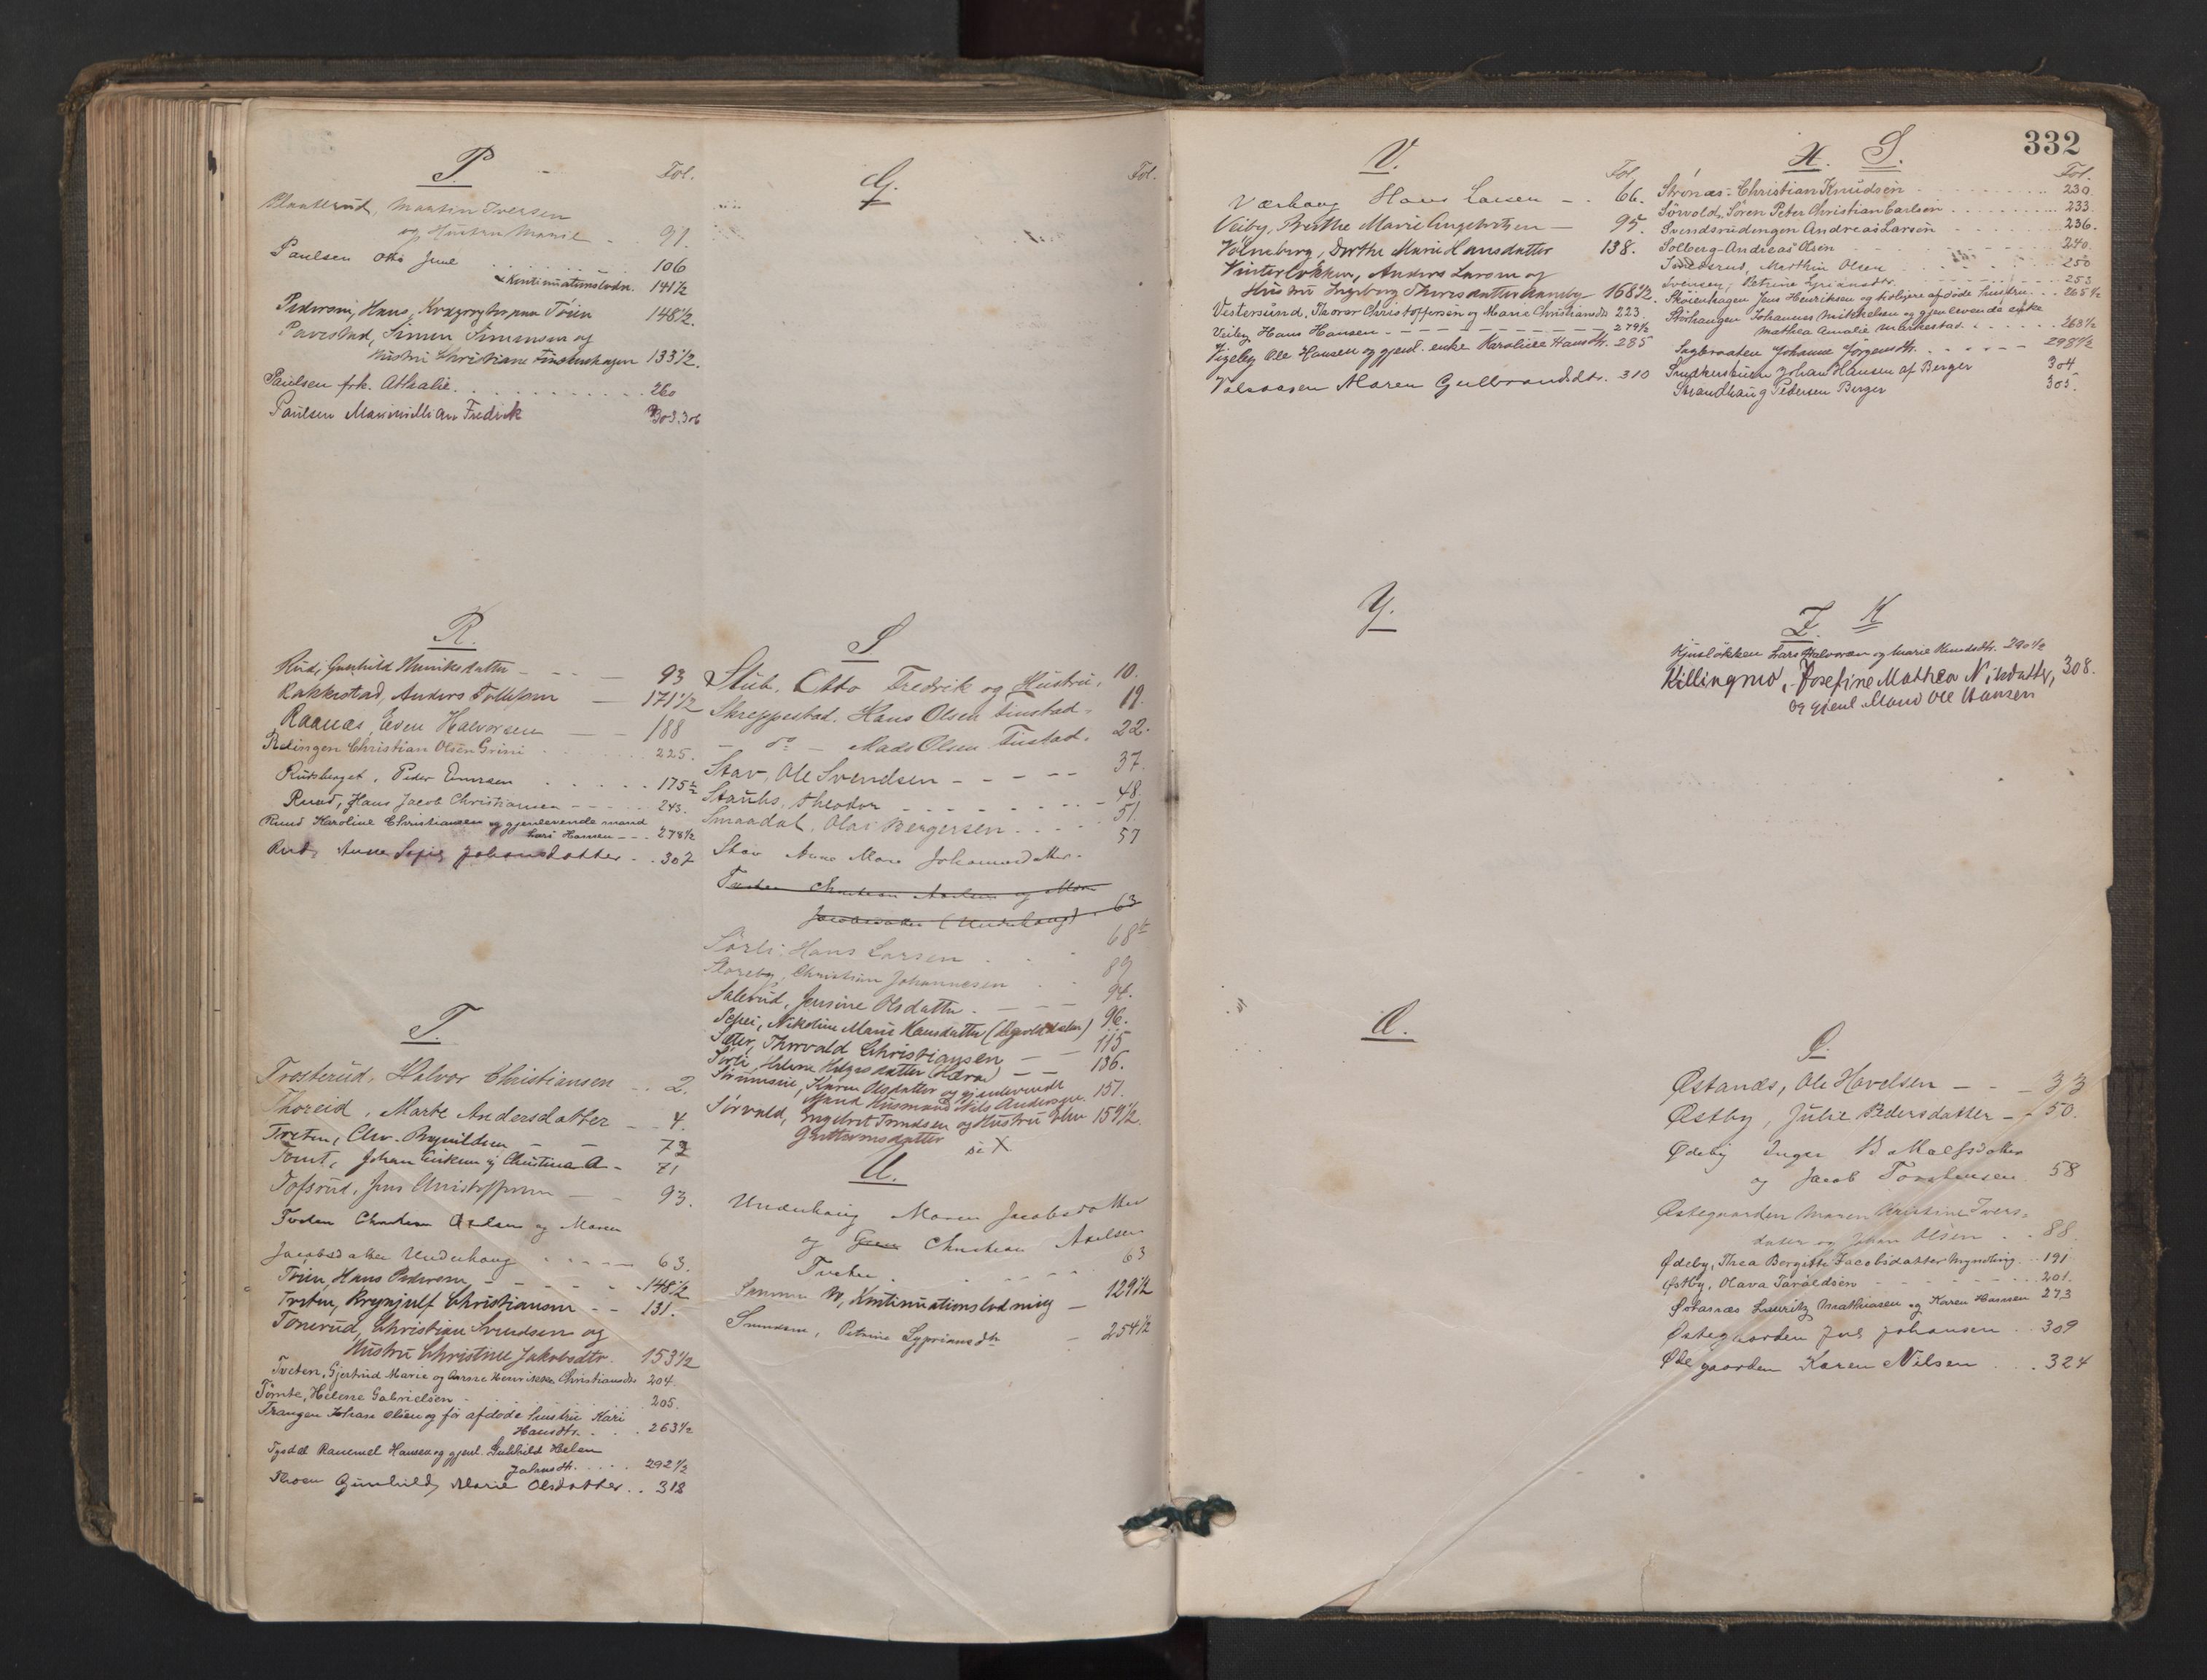 P.
Fol.
Planterud, Martin Iversen
og Hustru Marie - 91
Paulsen Otto Juul . . . . . . 106
Kontinuationslodn. 141½
Pedersen, Hans, Tøien 148½.
Paverstad, Simen Simensen og
Hustru Christiane 133½.
Paulsen frk. Athalie. . . . . . . . . . 260
Paulsen Maximillian Fredrik 303.306
R.
Rud, Gunhild Henriksdatter - - - 93
Rakkestad, Anders Tollefsen — 171½
Raanas, Even Halvorsen — — 188
Christian Olsen Grini . . . . 225.
Rudshaget, Peder Einersen . . . . . 175½
Ruud, Hans Jacob Christiansen - - - - 243.
Ruud Karoline Christiansen og gjenlevende mand
Lars Hansen - - - 278½
Rud, Anne Sofie Johansdatter . . 307
T.
Trosterud, Halvor Christiansen - . 2.
Thoreid, Marte Andersdatter - - 4.
Treten, Chr. Brynildsen — — 72
Tomt, Johan Eriksen og Christina A - 71
Tofsrud, Jens Christoffersen — - 93.
Tveten Christian Axelsen og Maren
Jacobsdatter Underhaug - - - - — 63.
Tøien, Hans Pedersen - - - - - 148½
Treten, Brynjulf Christiansen - - 131.
Tonerud, Christian Svendsen og
Hustru Christine Jakobsdtr. 153½
Tveten, Gjertrud Marie og Anne Henrikke Christiansdtr 204.
Tømte, Helene Gabrielsen . . . . . . . 205.
Trangen Johan Olsen og før afdøde hustru Kari
Hansdtr. . . . . 263½
Tysdal Rasmus Hansen og gjenl. Gunhild Helene
Johnsdtr. . . . . 292½
Thoen Gunhild Marie Olsdatter . . 312
Q.
Fol.
S
Stub, Otto Fredrik og Hustru, 10.
Skreppestad, Hans Olsen Finstad. 19.
— do — Mads Olsen Finstad. 22.
Stav, Ole Svendsen - - - - - 37.
Stauhs, Theodor - - - - - - - - 48.
Smaadal, Olai Bergersen . . . . . 51.
Stav Anne Mare Johannesdatter. 57
Tveten Christian Axelsen og Maren
Jacobsdatter (Underhaug) . 63
Sørli. Hans Larsen . . . 68½
Storeby, Christian Johannesen . . 89
Salerud, Jensine Olsdatter . - - - 94.
Schei, Nikoline Marie Hansdatter 96.
Sæter, Thorvald Christiansen — — 115
Sørli, Helene Helgesdatter (Hæra) — — 136.
Karen Olsdatter og gjenlevende
Mand Husmand Nils Andersen. 151.
Sørvald, Ingebret Trondsen og Hustru Eline 159½.
Guttormsdatter
se X
U.
Underhaug Maren Jacobsdatter
og Christian Axelsen
Tveten . . . . - - 63
Kontinuationslodning — 129½
Petrine Cypriansdtr — 254½
332
V.
Fol.
Værhaug Hans Larsen — . 66.
Veiby, Berthe Marie Engebretsen — 95.
Volmberg, Dorthe Marie Hansdatter 138.
Vinterløkken, Anders Larsen og
Hustru Ingeborg Thoresdatter 168½.
Vestersund, Thorer Christoffersen og Marie Christiansdtr 223.
Veiby, Hans Hansen. - - - - - - - - - - - 279½
Vigeby Ole Hansen og gjenl. enke Karoline Hansdtr. 285
Volaasen Maren Gulbrandsdtr. . 310
X. S.
Fol.
Strønæs: Christian Knudsen . . . . . . . . . . 230
Sørvold, Søren Peter Christian Carlsen . . . . . . . . 233.
Svendsrudengen Andreas Larsen . . . . . . . 236.
Solberg Andreas Olsen - - - - - - - - 240.
Marthin Olsen . . . . . . . 250
Svensen, Petrine Cypriansdtr. . . . . . . . 253
Skøienhagen Jens Henriksen og tidligere afdøde hustru . . . 265½
Størhaugen Johannes Mikkelsen og gjenlevende enke
Mathea Amalie Markestad. . . . . . 268½
Sagbraaten Johanne Jørgensdtr. . . . . - - 298½
Smedhersturen Johan Hansen af Berger 304.
Strandhaug Pedersen Berger 305.
Y.
Z. K
Kjusløkken Lars Halvorsen og Marie Knudsdtr. 290½
Killingmo, Josefine Mathea Nilsdatter, 308.
og gjenl Mand Ole Hansen
Æ.
Ø.
Østanæs, Ole Havelsen — - — 33
Østby, Julie Pedersdatter — - 50.
Ødeby Inger
og Jacob Torstensen. 58
Østegaarden Maren Kristine Ivers-
datter og Johan Olsen . . 88.
Ødeby, Thea Bergitte Jacobsdatter Myndling. . 191.
Østby, Olava Taraldsen - - - - - - . . . . 201.
Østanæs Lauritz Mathiasen og Karen Hansen 273
Østegaarden Jul Johansen . . 309
Ødegaarden Karen Nilsen . . . 324